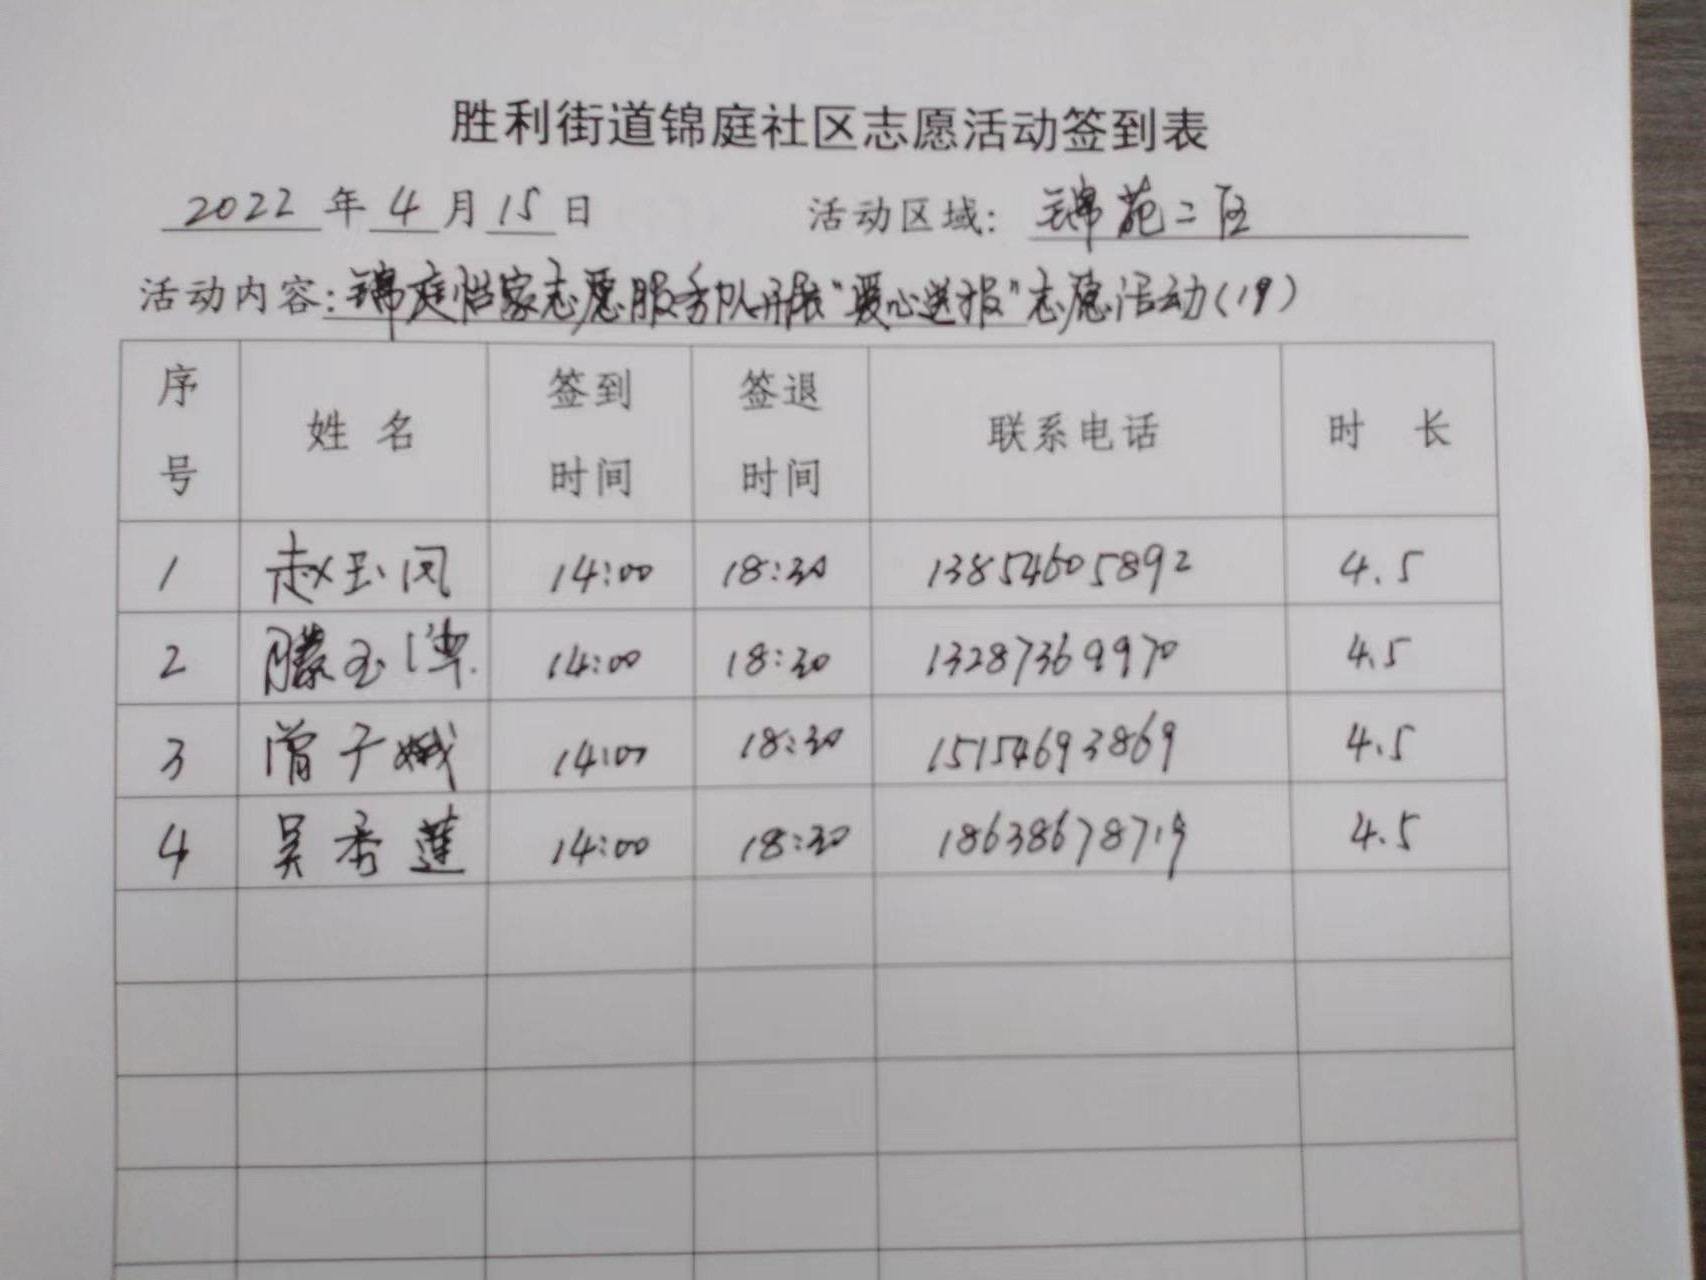 胜利街道锦庭社区志愿活动签到表
2022年4月15日 活动区域：锦苑二区
活动内容：锦庭怡家志愿服务队开展“爱心送报”志愿活动（19）
序号 姓名 签到时间 签退时间 联系电话 时长
1 赵玉凤 14:00 18:30 13854605892 4.5
2 滕玉 14:00 18:30 13287369970 4.5
3 曾子娥 14:00 18:30 15154693869 4.5
4 吴秀莲 14:00 18:30 18638678719 4.5